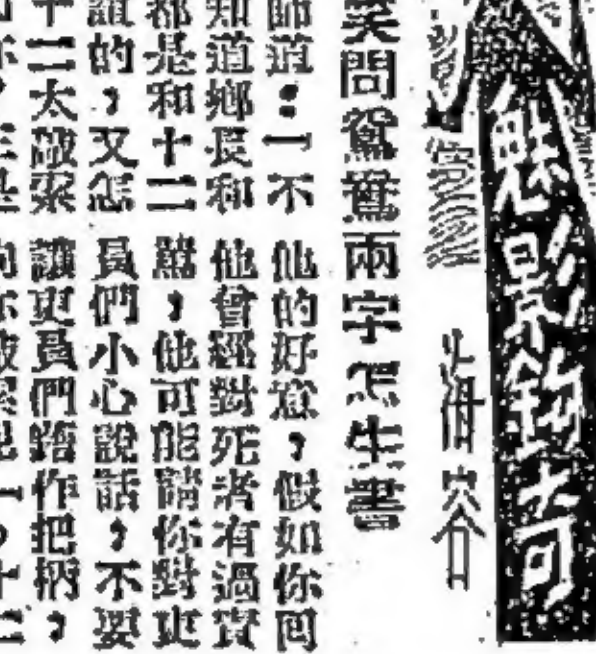 魅影鉤奇
海容
笑問鴛鴦兩字怎生書
師道：「不
知道鄉長和
都是和十二
誼的，又怎
十二太破案
他的好意，假如你回
他曾經對死者有過責
罵，他可能請你對吏
員們小心說話，不要
讓吏員們作把柄，